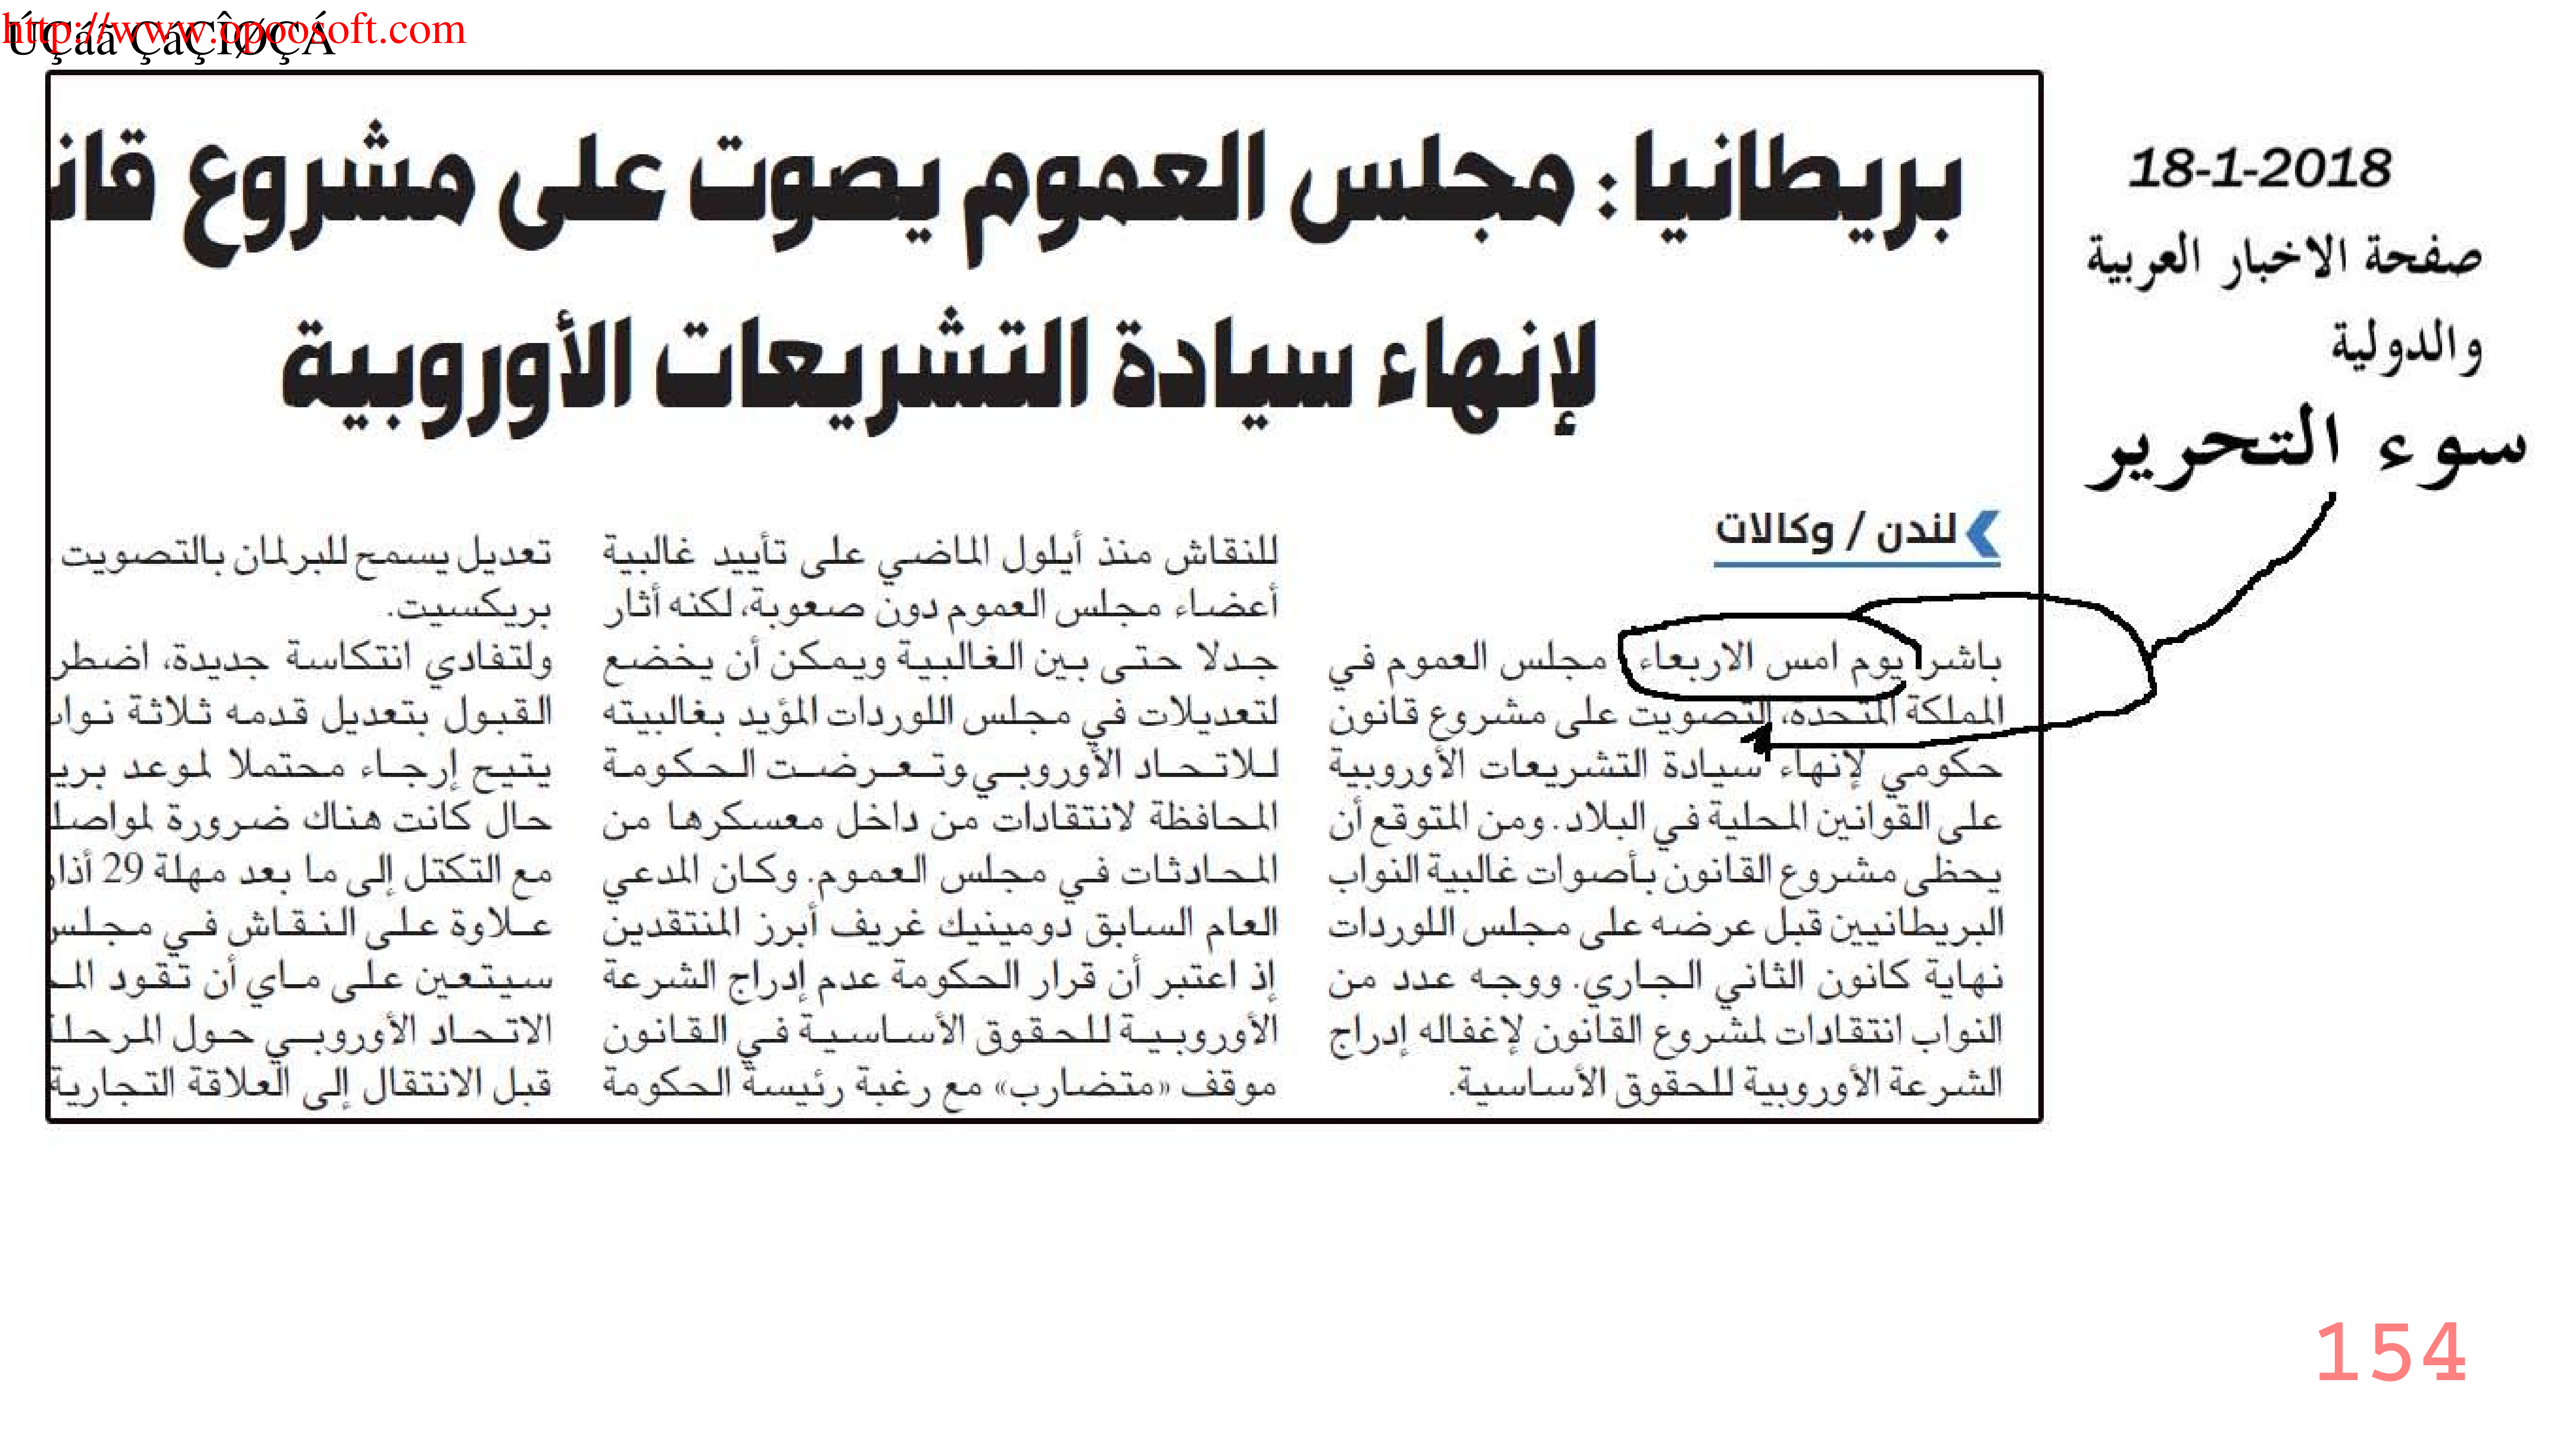 http://www.opoosoft.com
ÚÇáã ÇáÇÎØÇÁ
18-1-2018
صفحة الاخبار العربية
والدولية
سوء التحرير
بريطانيا: مجلس العموم يصوت على مشروع
لإنهاء سيادة التشريعات الأوروبية
لندن / وكالات
باشر يوم امس الاربعاء، مجلس العموم في
المملكة المتحدة، التصويت على مشروع قانون
حكومي لإنهاء سيادة التشريعات الأوروبية
على القوانين المحلية في البلاد. ومن المتوقع أن
يحظى مشروع القانون بأصوات غالبية النواب
البريطانيين قبل عرضه على مجلس اللوردات
نهاية كانون الثاني الجاري. ووجه عدد من
النواب انتقادات لمشروع القانون لإغفاله إدراج
الشرعة الأوروبية للحقوق الأساسية.
للنقاش منذ أيلول الماضي على تأييد غالبية
أعضاء مجلس العموم دون صعوبة، لكنه أثار
جدلا حتى بين الغالبية ويمكن أن يخضع
لتعديلات في مجلس اللوردات المؤيد بغالبيته
للاتحاد الأوروبي وتعرضت الحكومة
المحافظة لانتقادات من داخل معسكرها من
المحادثات في مجلس العموم. وكان المدعي
العام السابق دومينيك غريف أبرز المنتقدين
إذ اعتبر أن قرار الحكومة عدم إدراج الشرعة
الأوروبية للحقوق الأساسية في القانون
موقف «متضارب» مع رغبة رئيسة الحكومة
تعديل يسمح للبرلمان بالتصويت
بريكسيت.
ولتفادي انتكاسة جديدة، اضطر
القبول بتعديل قدمه ثلاثة
يتيح إرجاء محتملا لموعد
حال كانت هناك ضرورة
مع التكتل إلى ما بعد مهلة 29
علاوة على النقاش في مجلس
سيتعين على ماي أن تقود
الاتحاد الأوروبي حول المرحلة
قبل الانتقال إلى العلاقة التجارية
154